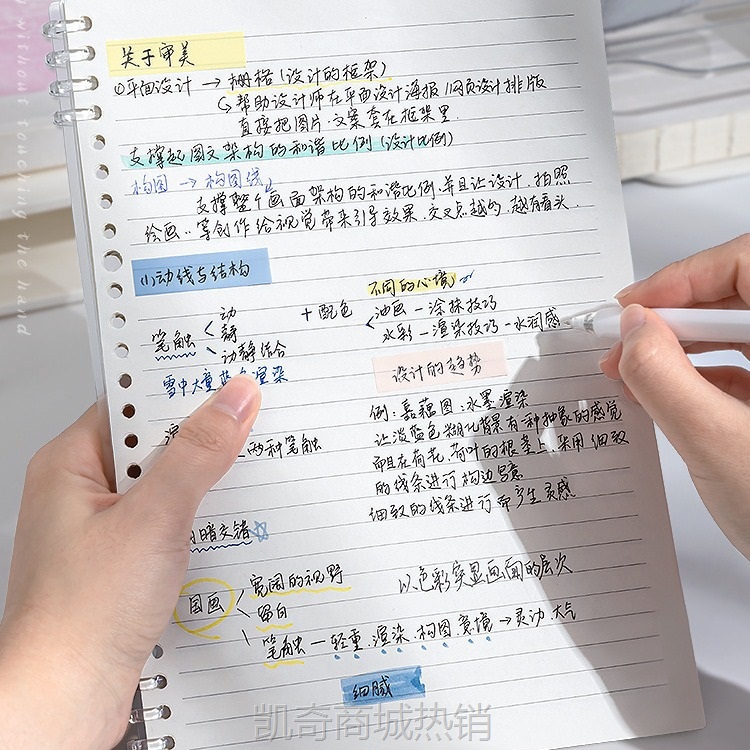 关于审美
①平面设计 → 栅格(设计的框架)
↳ 帮助设计师在平面设计海报、网页设计排版
直接把图片、文案套在框架里
支撑起图文架构的和谐比例(设计比例)
构图 → 构图线
支撑整个画面架构的和谐比例,并且让设计、拍照
绘画..等创作给视觉带来引导效果,交叉点越多,越有看头.
(1)动线与结构
不同的心境
笔触 < 动
静
动静结合
+ 配色
< 油画 - 涂抹技巧
水彩 - 渲染技巧 - 水润感
雪中大量蓝色渲染
设计的趋势
两种笔触
例:嘉藕图:水墨渲染
让淡蓝色糊化背景有种抽象的感觉
而且在荷花、荷叶的根茎上采用细致
的线条进行构边写意
细致的线条进行而产生灵感
暗交错☆
国画 < 宽阔的视野
留白
笔触 — 轻重、渲染、构图、意境 → 灵动、大气
以色彩突显画面的层次
细腻
without touching the hand
凯奇商城热销